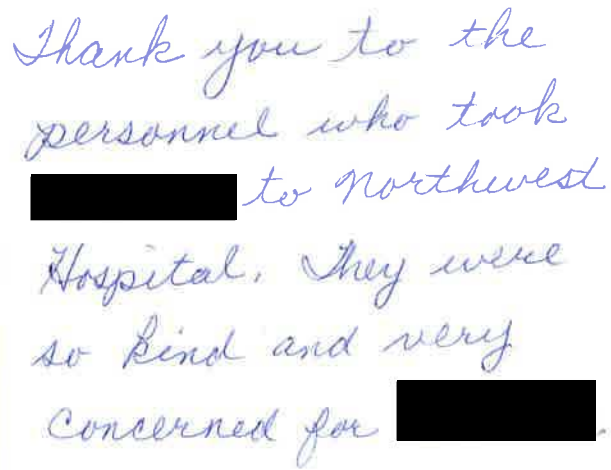 Thank you to the
personnel who took
to Northwest
Hospital. They were
so kind and very
concerned for .